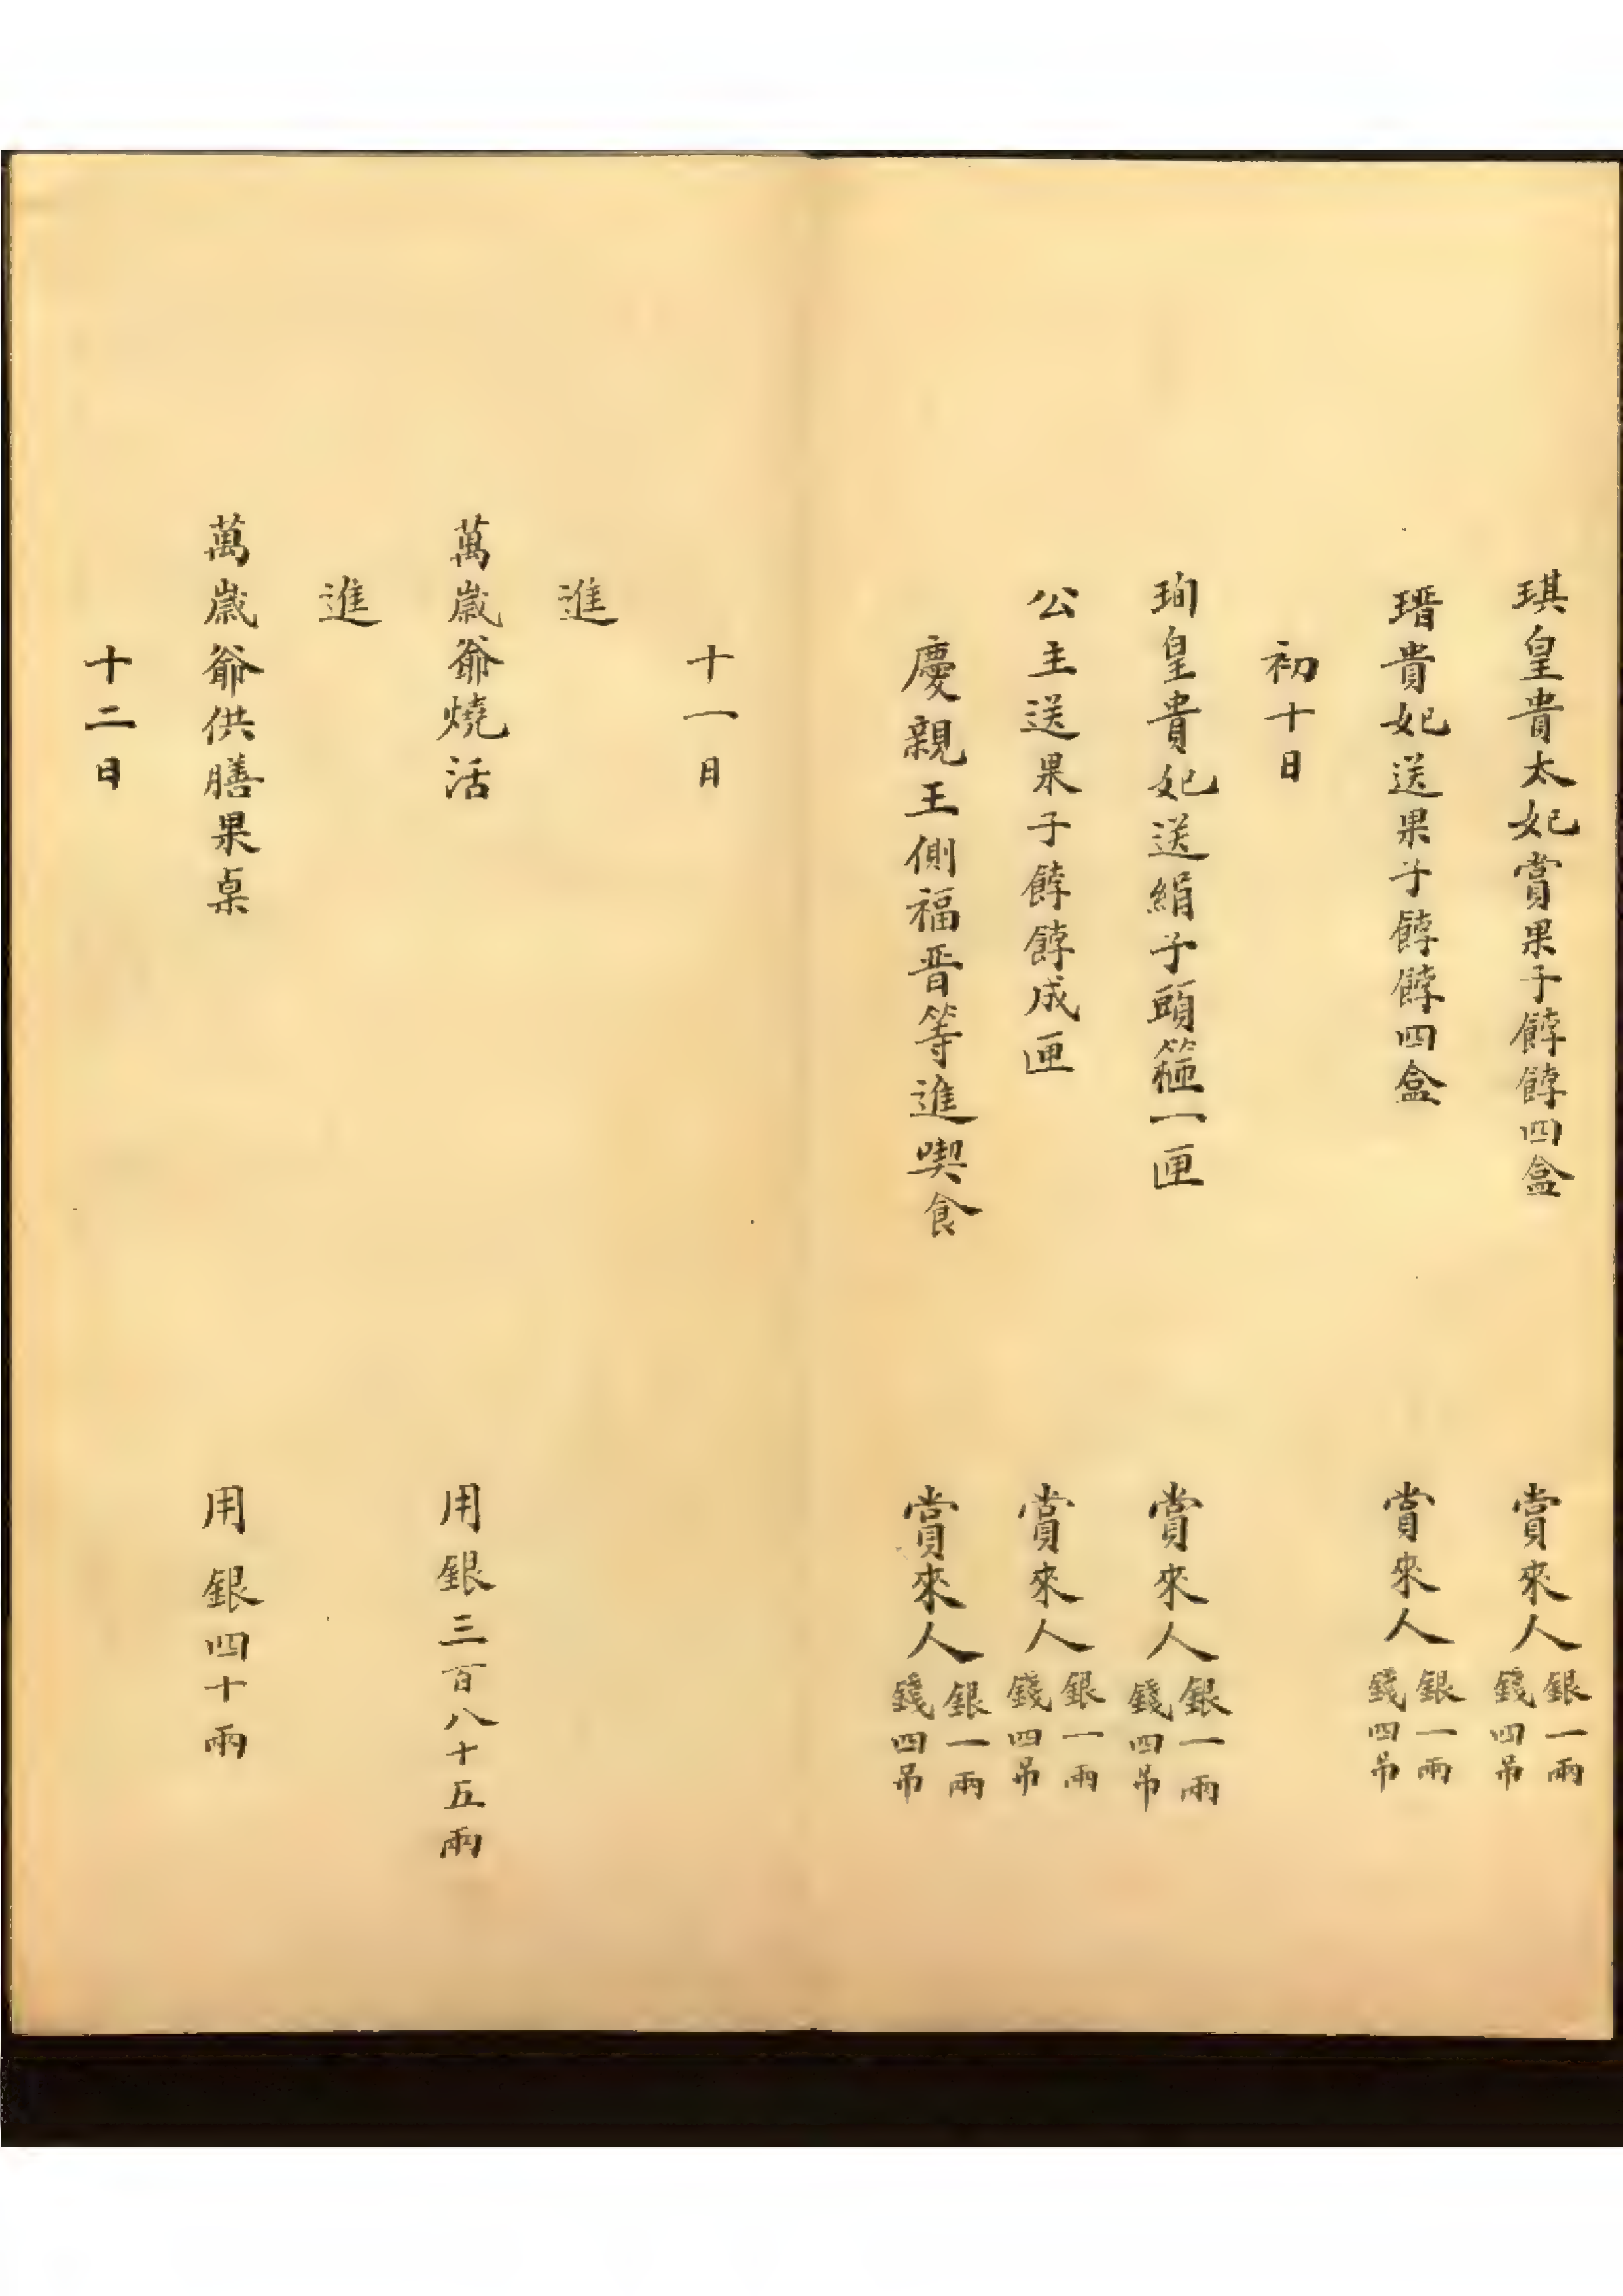 琪皇貴太妃賞果子餑餑四盒 賞來人銀一兩錢四吊
瑨貴妃送果子餑餑四盒 賞來人銀一兩錢四吊
初十日
珣皇貴妃送絹子頭箍一匣 賞來人銀一兩錢四吊
公主送果子餑餑成匣 賞來人銀一兩錢四吊
慶親王側福晋等進喫食 賞來人銀一兩錢四吊
十一日
進
萬歲爺燒活 用銀三百八十五兩
進
萬歲爺供膳果桌 用銀四十兩
十二日